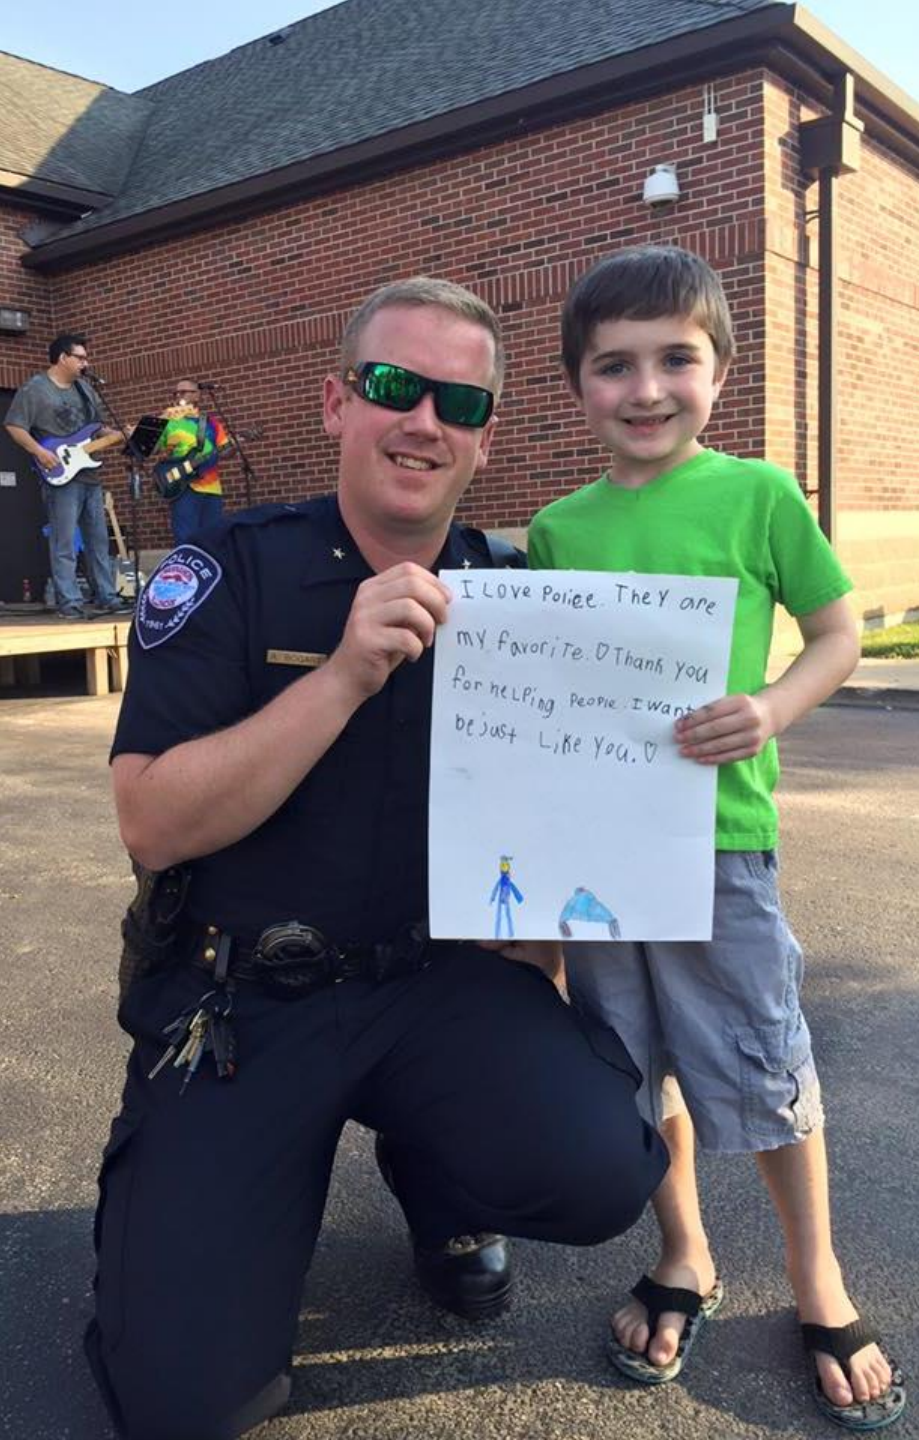 POLICE
1961
I Love Police. They are
my favorite. ♡ Thank you
for helping people. I want
be just Like you. ♡